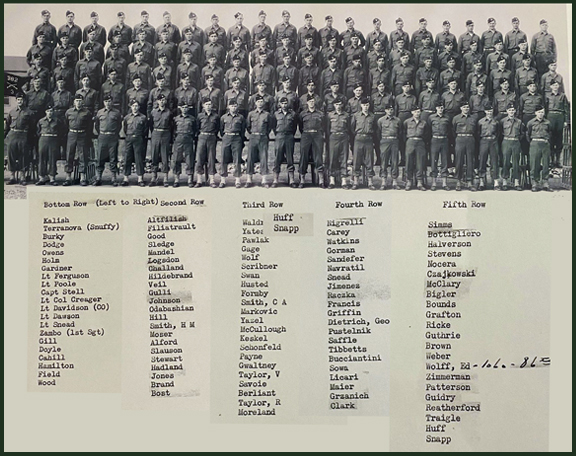 Bottom Row (Left to Right)
Kalish
Terranova (Smuffy)
Burky
Dodge
Owens
Holm
Gardner
Lt Ferguson
Lt Poole
Capt Stell
Lt Col Creager
Lt Davidson (CO)
Lt Dawson
Lt Snead
Zambo (1st Sgt)
Gill
Doyle
Cahill
Hamilton
Field
Wood
Second Row
Altfilish
Filiatrault
Good
Sledge
Mandel
Logsdon
Challand
Hildebrand
Veil
Gulli
Johnson
Odabashian
Hill
Smith, H M
Moser
Alford
Slauson
Stewart
Hadland
Jones
Brand
Bost
Third Row
Huff
Snapp
Pawlak
Gage
Wolf
Scribner
Swan
Husted
Formby
Smith, C A
Markovic
Yazel
McCullough
Keskel
Schonfeld
Payne
Gwaltney
Taylor, V
Savoie
Berliant
Taylor, R
Moreland
Fourth Row
Nigrelli
Carey
Watkins
Gorman
Sandefer
Navratil
Snead
Jimenez
Raczka
Francis
Griffin
Dietrich, Geo
Pustelnik
Saffle
Tibbetts
Bucciantini
Sowa
Licari
Maier
Grzanich
Clark
Fifth Row
Simms
Bottigliero
Halverson
Stevens
Nocera
Czajkowski
McClary
Bigler
Bounds
Grafton
Ricke
Guthrie
Brown
Weber
Wolff, Ed
Zimmerman
Patterson
Guidry
Reatherford
Traigle
Huff
Snapp